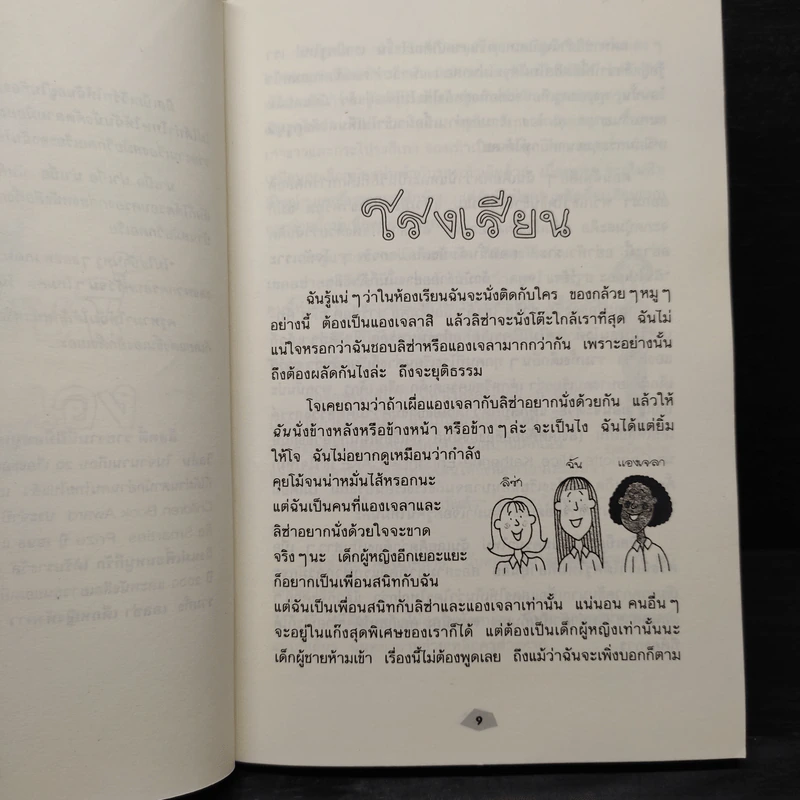 โรงเรียน
ฉันรู้แน่ ๆ ว่าในห้องเรียนฉันจะนั่งติดกับใคร ของกล้วย ๆ หมู ๆ
อย่างนี้ ต้องเป็นแองเจลาสิ แล้วลิซ่าจะนั่งโต๊ะใกล้เราที่สุด ฉันไม่
แน่ใจหรอกว่าฉันชอบลิซ่าหรือแองเจลามากกว่ากัน เพราะอย่างนั้น
ถึงต้องผลัดกันไงล่ะ ถึงจะยุติธรรม
โจเคยถามว่าถ้าเผื่อแองเจลากับลิซ่าอยากนั่งด้วยกัน แล้วให้
ฉันนั่งข้างหลังหรือข้างหน้า หรือข้าง ๆ ล่ะ จะเป็นไง ฉันได้แต่ยิ้ม
ให้โจ ฉันไม่อยากดูเหมือนว่ากำลัง
คุยโม้จนน่าหมั่นไส้หรอกนะ
แต่ฉันเป็นคนที่แองเจลาและ
ลิซ่าอยากนั่งด้วยใจจะขาด
จริง ๆ นะ เด็กผู้หญิงอีกเยอะแยะ
ก็อยากเป็นเพื่อนสนิทกับฉัน
ลิซ่า
ฉัน
แองเจลา
แต่ฉันเป็นเพื่อนสนิทกับลิซ่าและแองเจลาเท่านั้น แน่นอน คนอื่น ๆ
จะอยู่ในแก๊งสุดพิเศษของเราก็ได้ แต่ต้องเป็นเด็กผู้หญิงเท่านั้นนะ
เด็กผู้ชายห้ามเข้า เรื่องนี้ไม่ต้องพูดเลย ถึงแม้ว่าฉันจะเพิ่งบอกก็ตาม
9